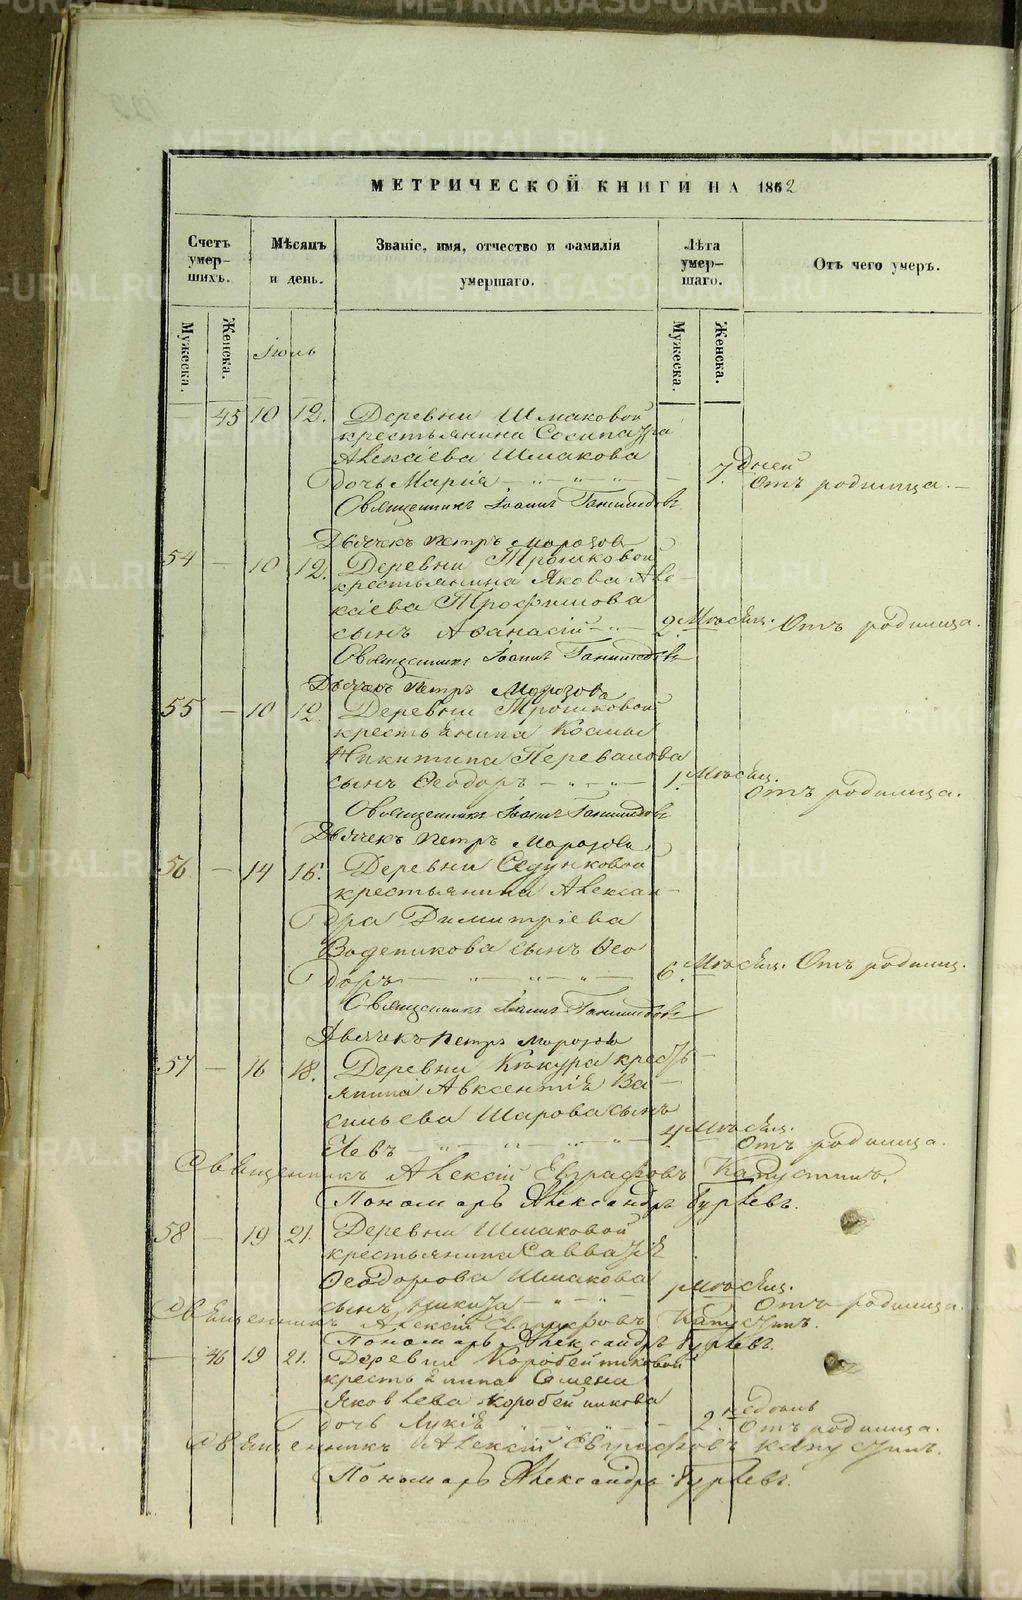 МЕТРИЧЕСКОЙ КНИГИ НА 1862
Счетъ умер-шихъ.
Мѣсяцъ и день.
Званіе, имя, отчество и фамилія умершаго.
Лѣта умер-шаго.
Отъ чего умеръ.
Мужеска.
Женска.
Мужеска.
Женска.
Іюль
— 45 10 12. Деревни Шмаковой
крестьянина Сосипатра
Алексіева Шмакова
дочь Марія — 7. дней Отъ родимца. —
Священникъ Іоаннъ
Дьячекъ Петръ Морозовъ
54 — 10 12. Деревни Трошковой
крестьянина Якова Але-
ксіева Трофимова
сынъ Афанасій — 2. Мѣсяц. Отъ родимца.
Священникъ Іоаннъ
Дьячекъ Петръ Морозовъ
55 — 10 12. Деревни Трошковой
крестьянина Космы
Никитина Перевалова
сынъ Ѳеодоръ — 1. Мѣсяц. Отъ родимца.
Священникъ Іоаннъ
Дьячекъ Петръ Морозовъ
56 — 14 16. Деревни Седунковой
крестьянина Алексан-
дра Димитріева
Воденикова сынъ Ѳео
доръ — 6. Мѣсяц. Отъ родимц.
Священникъ Іоаннъ
Дьячекъ Петръ Морозовъ
57 — 16 18. Деревни Кокура кресть-
янина Авксентія Ва-
сильева Шарова сынъ
Іевъ — 4 Мѣсяц. Отъ родимца.
Священникъ Алексій Евграфовъ Капустинъ.
Пономарь Александръ Гурьевъ.
58 — 19 21. Деревни Шмаковой
крестьянина Савватія
Ѳеодорова Шмакова
сынъ Никита — 1 Мѣсяц. Отъ родимца.
Священникъ Алексій Евграфовъ Капустинъ.
Пономарь Александръ Гурьевъ.
— 46 19 21. Деревни Коробейниковой
крестьянина Семена
Яковлева Коробейникова
дочь Лукія — 2. недѣль Отъ родимца.
Священникъ Алексій Евграфовъ Капустинъ.
Пономарь Александръ Гурьевъ.
METRIKI.GASO-URAL.RU